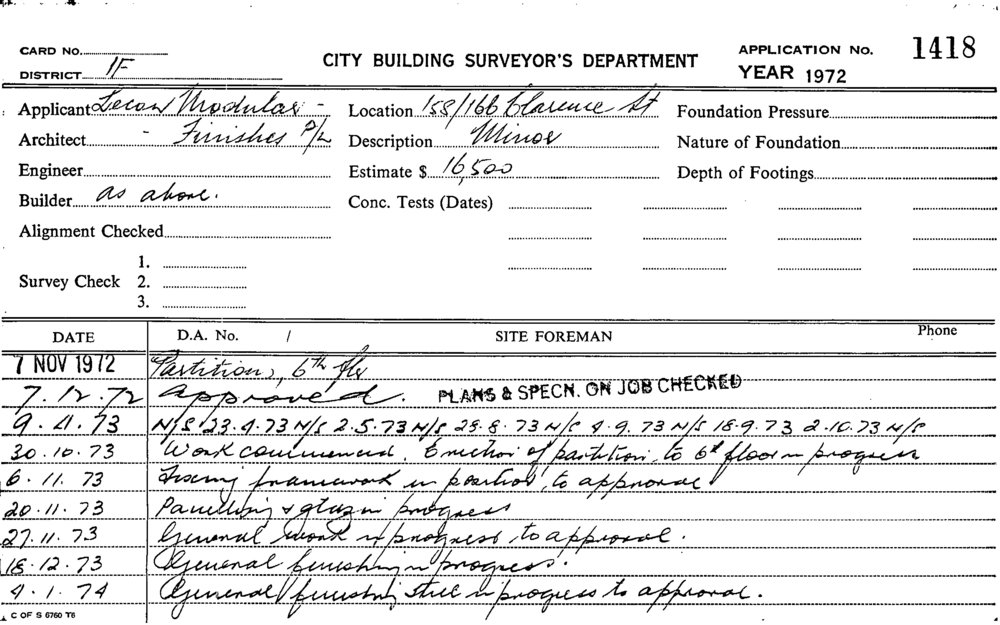 CARD No.
DISTRICT 1F
CITY BUILDING SURVEYOR'S DEPARTMENT
APPLICATION No. 1418
YEAR 1972
Applicant Modular -
Architect - Finishes P/L
Engineer
Builder as above.
Alignment Checked
Survey Check 1.
2.
3.
Location 158/166 Clarence St
Description Minor
Estimate $ 16,500
Conc. Tests (Dates)
Foundation Pressure
Nature of Foundation
Depth of Footings
DATE D.A. No. / SITE FOREMAN Phone
7 NOV 1972 Partitions, 6th flr
7.12.72 Approved. PLANS & SPECN. ON JOB CHECKED
9.4.73 N/S 23.4.73 N/S 2.5.73 N/S 28.8.73 N/S 4.9.73 N/S 18.9.73 2.10.73 N/S
30.10.73 Work commenced. Erection of partition, to 6th floor in progress
6.11.73 framework in position, to approval
20.11.73 Panelling & glazing in progress
27.11.73 General work in progress to approval.
18.12.73 General finishing in progress.
4.1.74 General finishing still in progress to approval.
C OF S 6760 T6